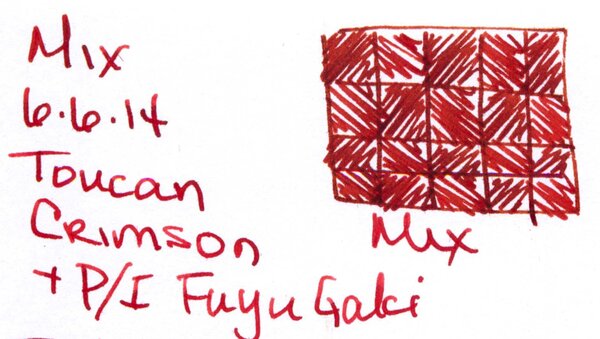 Mix
6.6.14
Toucan
Crimson
+ P/I Fuyu Gaki
Mix